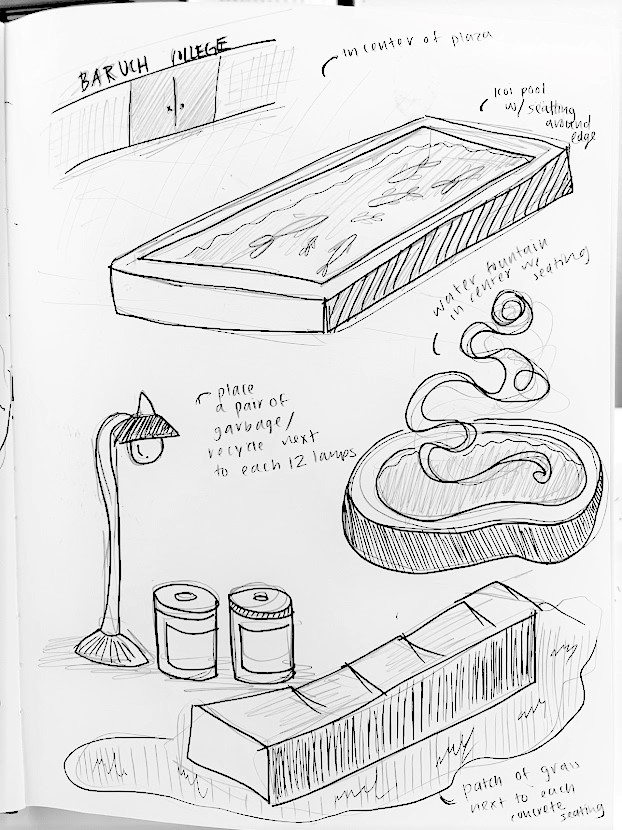 BARUCH COLLEGE
in center of plaza
koi pool
w/ seating
around
edge
water fountain
in center w/
seating
place
a pair of
garbage/
recycle next
to each 12 lamps
patch of grass
next to each
concrete
seating